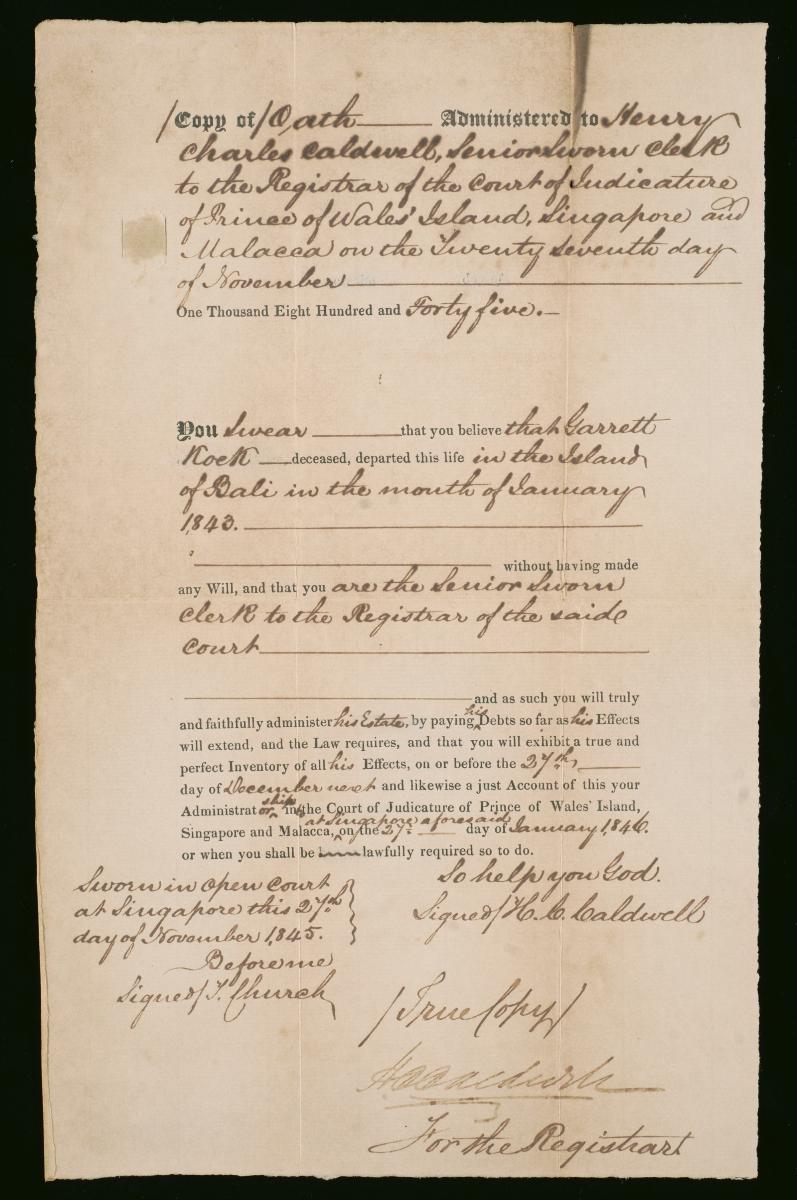 /Copy of/ Oath Administered to Henry
Charles Caldwell, Senior Sworn Clerk
to the Registrar of the Court of Judicature
of Prince of Wales' Island, Singapore and
Malacca on the Twenty seventh day
of November
One Thousand Eight Hundred and Forty five.
You Swear that you believe that Garrett
Kock deceased, departed this life in the Island
of Bali in the month of January
1843.
without having made
any Will, and that you are the Senior Sworn
Clerk to the Registrar of the said
Court
and as such you will truly
and faithfully administer his Estate, by paying his Debts so far as his Effects
will extend, and the Law requires, and that you will exhibit a true and
perfect Inventory of all his Effects, on or before the 27th
day of December next and likewise a just Account of this your
Administratorship in the Court of Judicature of Prince of Wales' Island,
Singapore and Malacca, at Singapore aforesaid on the 27 day of January 1846.
or when you shall be lawfully required so to do.
So help you God.
Signed/ H. C. Caldwell
Sworn in open Court
at Singapore this 27th
day of November 1845.
Before me
Signed/ T. Church
/True Copy/
HCCaldwell
For the Registrar